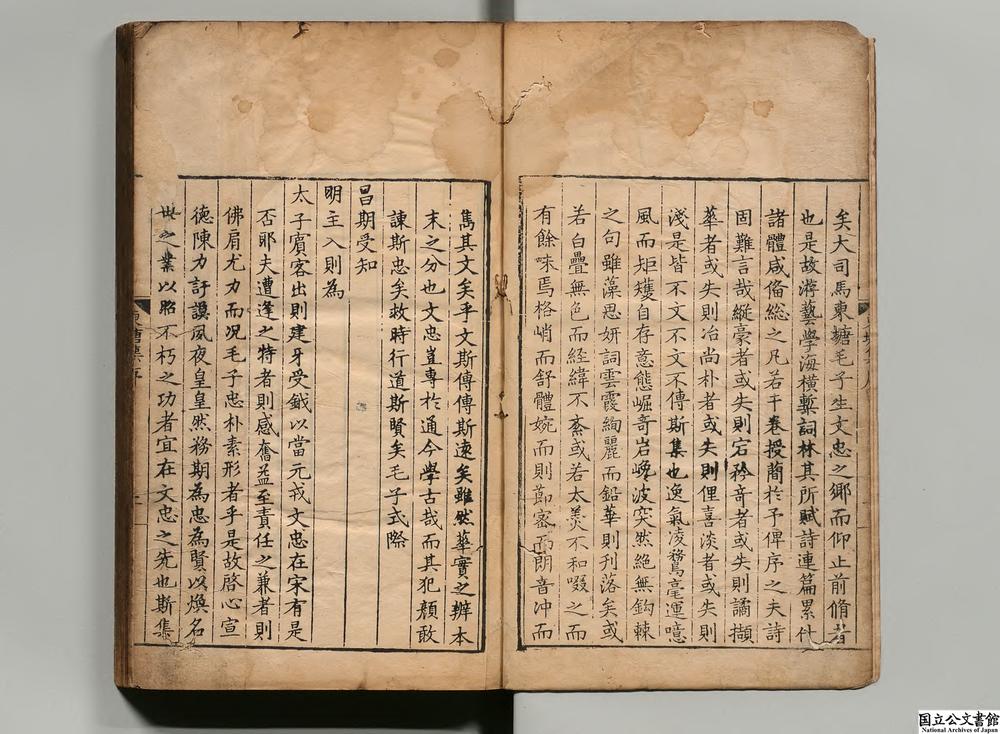 矣大司馬東塘毛子生文忠之鄉而仰止前脩者
也是故游藝學海橫槧詞林其所賦詩連篇累什
諸體咸備總之凡若干卷授蕑於予俾序之夫詩
固難言哉縱豪者或失則宕矜奇者或失則譎擷
華者或失則冶尚朴者或失則俚喜淡者或失則
淺是皆不文不文不傳斯集也逸氣凌鶩毫運噫
風而矩矱自存意態崛奇岩嶢波突然絕無鈎棘
之句雖藻思妍詞雲霞絢麗而鉛華則刋落矣或
若白疊無色而経緯不紊或若太羮不和啜之而
有餘味焉格峭而舒體婉而則節宻而朗音冲而
雋其文矣乎文斯傳傳斯逺矣雖然華實之辨本
末之分也文忠豈專於通今學古哉而其犯顏敢
諫斯忠矣救時行道斯賢矣毛子式際
昌期受知
明主入則為
太子賓客出則建牙受鉞以當元戎文忠在宋有是
否耶夫遭逢之特者則感奮益至責任之兼者則
佛肩尤力而况毛子忠朴素形者乎是故啓心宣
德陳力訏謨夙夜皇皇然務期為忠為賢以煥名
世之業以昭不朽之功者宜在文忠之先也斯集
国立公文書館
National Archives of Japan